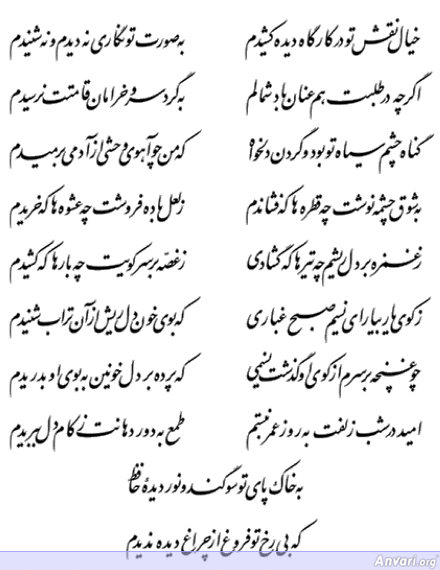 خیال نقش تو در کارگاه دیده کشیدم به صورت تو نگاری نه دیدم و نه شنیدم
اگرچه در طلبت هم عنان باد شمالم به گرد سرو خرامان قامتت نرسیدم
گناه چشم سیاه تو بود و گردن دلخواه که من چو آهوی وحشی ز آدمی برمیدم
به شوق چشمه نوشت چه قطره ها که فشاندم ز لعل باده فروشت چه عشوه ها که خریدم
ز غمزه بر دل ریشم چه تیرها که گشادی ز غصّه بر سر کویت چه بارها که کشیدم
ز کوی یار بیار ای نسیم صبح غباری که بوی خون دل ریش از آن تراب شنیدم
چو غنچه بر سرم از کوی او گذشت نسیمی که پرده بر دل خونین به بوی او بدریدم
امید در شب زلفت به روز عمر نبستم طمع به دور دهانت ز کام دل ببریدم
به خاک پای تو سوگند و نور دیدهٔ حافظ
که بی رخ تو فروغ از چراغ دیده ندیدم
Anvari.org